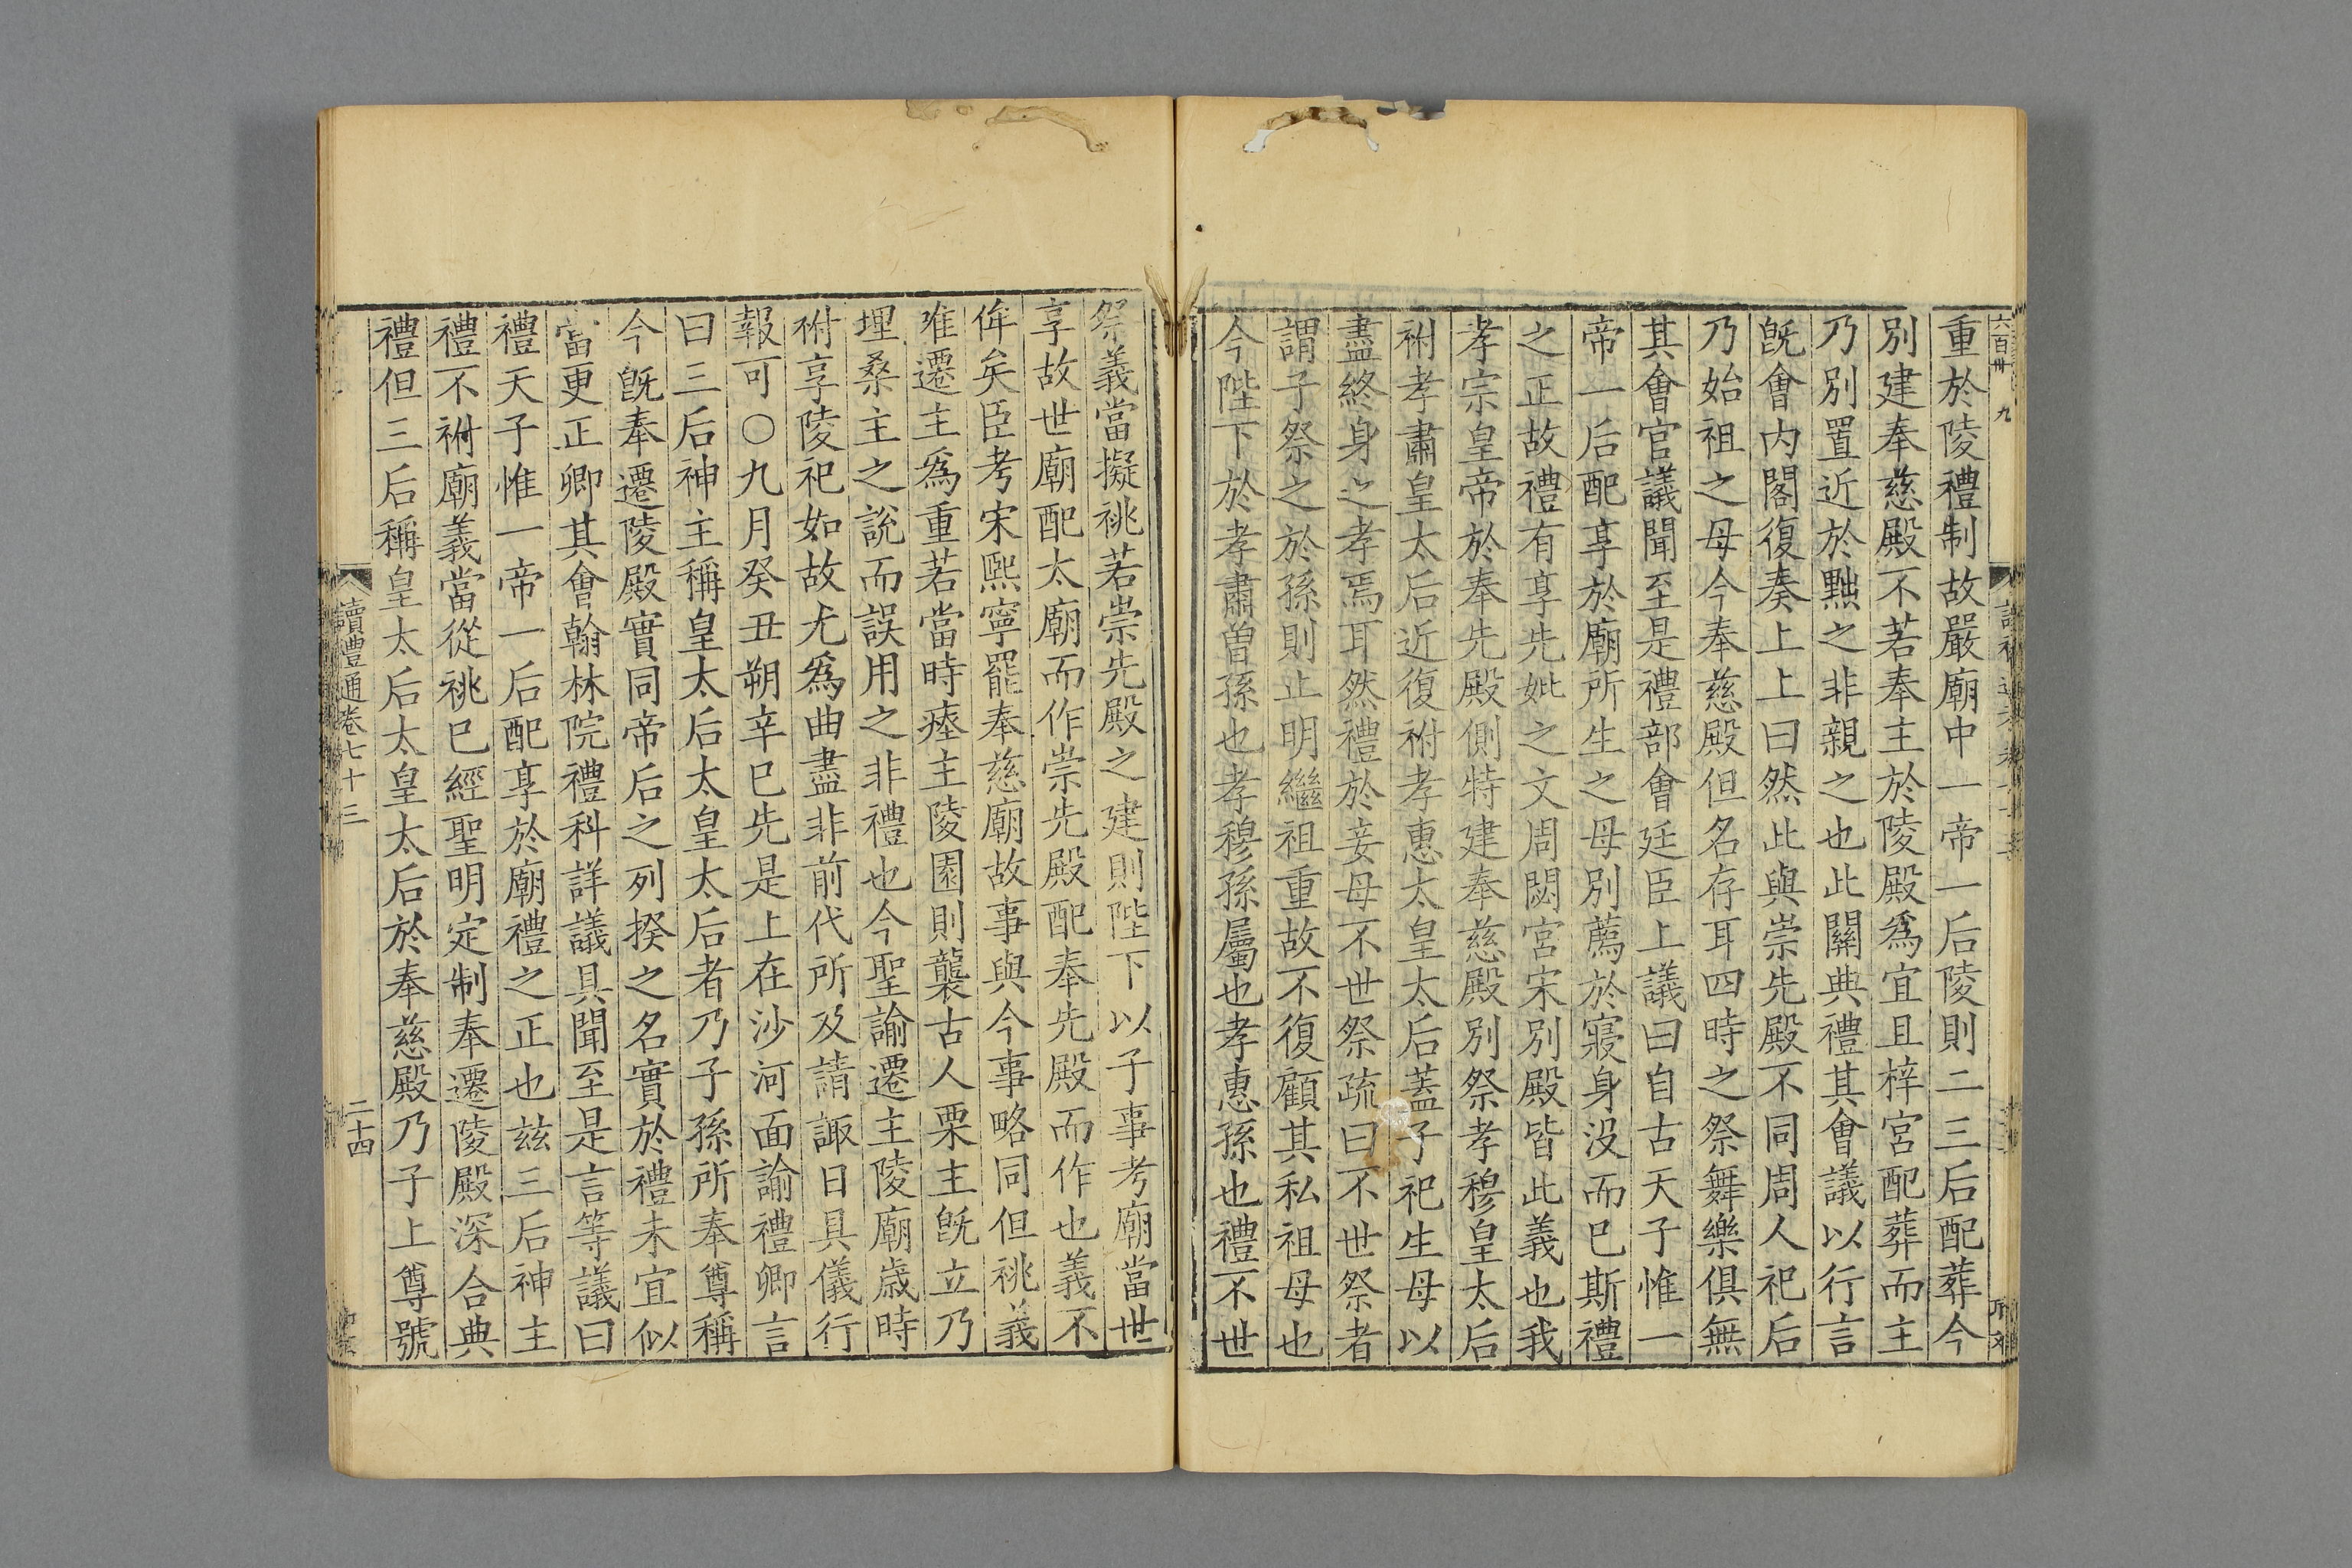 六百卅 九
重於陵禮制故嚴廟中一帝一后陵則二三后配葬今
別建奉慈殿不若奉主於陵殿爲宜且梓宮配葬而主
乃別置近於黜之非親之也此關典禮其會議以行言
旣會內閣復奏上上曰然此與崇先殿不同周人祀后
乃始祖之母今奉慈殿但名存耳四時之祭舞樂俱無
其會官議聞至是禮部會廷臣上議曰自古天子惟一
帝一后配享於廟所生之母別薦於寢身沒而已斯禮
之正故禮有享先妣之文周閟宮宋別殿皆此義也我
孝宗皇帝於奉先殿側特建奉慈殿別祭孝穆皇太后
祔孝肅皇太后近復祔孝惠太皇太后蓋子祀生母以
盡終身之孝焉耳然禮於妾母不世祭疏曰不世祭者
謂子祭之於孫則止明繼祖重故不復顧其私祖母也
今陛下於孝肅曾孫也孝穆孫屬也孝惠孫也禮不世
祭義當擬祧若崇先殿之建則陛下以子事考廟當世
享故世廟配太廟而作崇先殿配奉先殿而作也義不
侔矣臣考宋熙寧罷奉慈廟故事與今事略同但祧義
唯遷主爲重若當時瘞主陵園則襲古人栗主旣立乃
埋桑主之說而誤用之非禮也今聖諭遷主陵廟歲時
祔享陵祀如故尤爲曲盡非前代所及請諏日具儀行
報可○九月癸丑朔辛巳先是上在沙河面諭禮卿言
曰三后神主稱皇太后太皇太后者乃子孫所奉尊稱
今旣奉遷陵殿實同帝后之列揆之名實於禮未宜似
當更正卿其會翰林院禮科詳議具聞至是言等議曰
禮天子惟一帝一后配享於廟禮之正也茲三后神主
禮不祔廟義當從祧已經聖明定制奉遷陵殿深合典
禮但三后稱皇太后太皇太后於奉慈殿乃子上尊號
讀禮通卷七十三
二十四